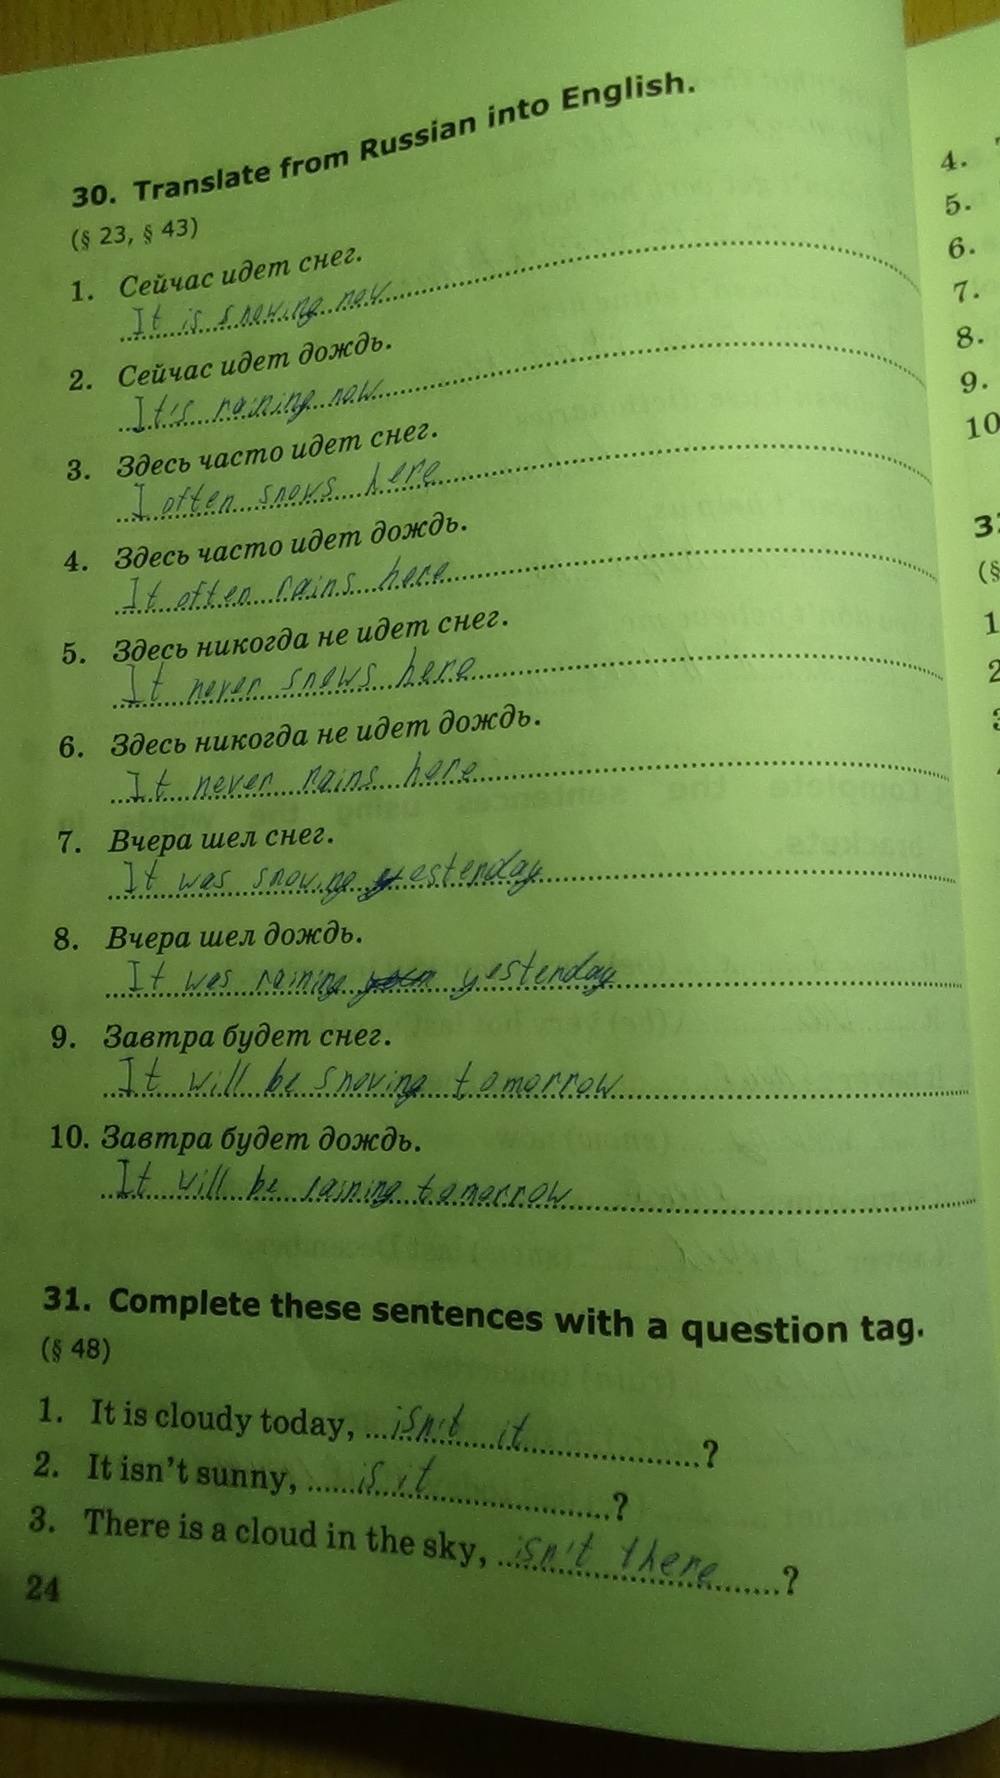 30. Translate from Russian into English.
(§ 23, § 43)
1. Сейчас идет снег.
It is snowing now
2. Сейчас идет дождь.
It's raining now
3. Здесь часто идет снег.
I often snows here
4. Здесь часто идет дождь.
It often rains here
5. Здесь никогда не идет снег.
It never snows here
6. Здесь никогда не идет дождь.
It never rains here
7. Вчера шел снег.
It was snowing yesterday
8. Вчера шел дождь.
It was raining yesterday
9. Завтра будет снег.
It will be snowing tomorrow
10. Завтра будет дождь.
It will be raining tomorrow
31. Complete these sentences with a question tag.
(§ 48)
1. It is cloudy today, isn't it ?
2. It isn't sunny, is it ?
3. There is a cloud in the sky, isn't there ?
24
4.
5.
6.
7.
8.
9.
10
(§
1
2
3